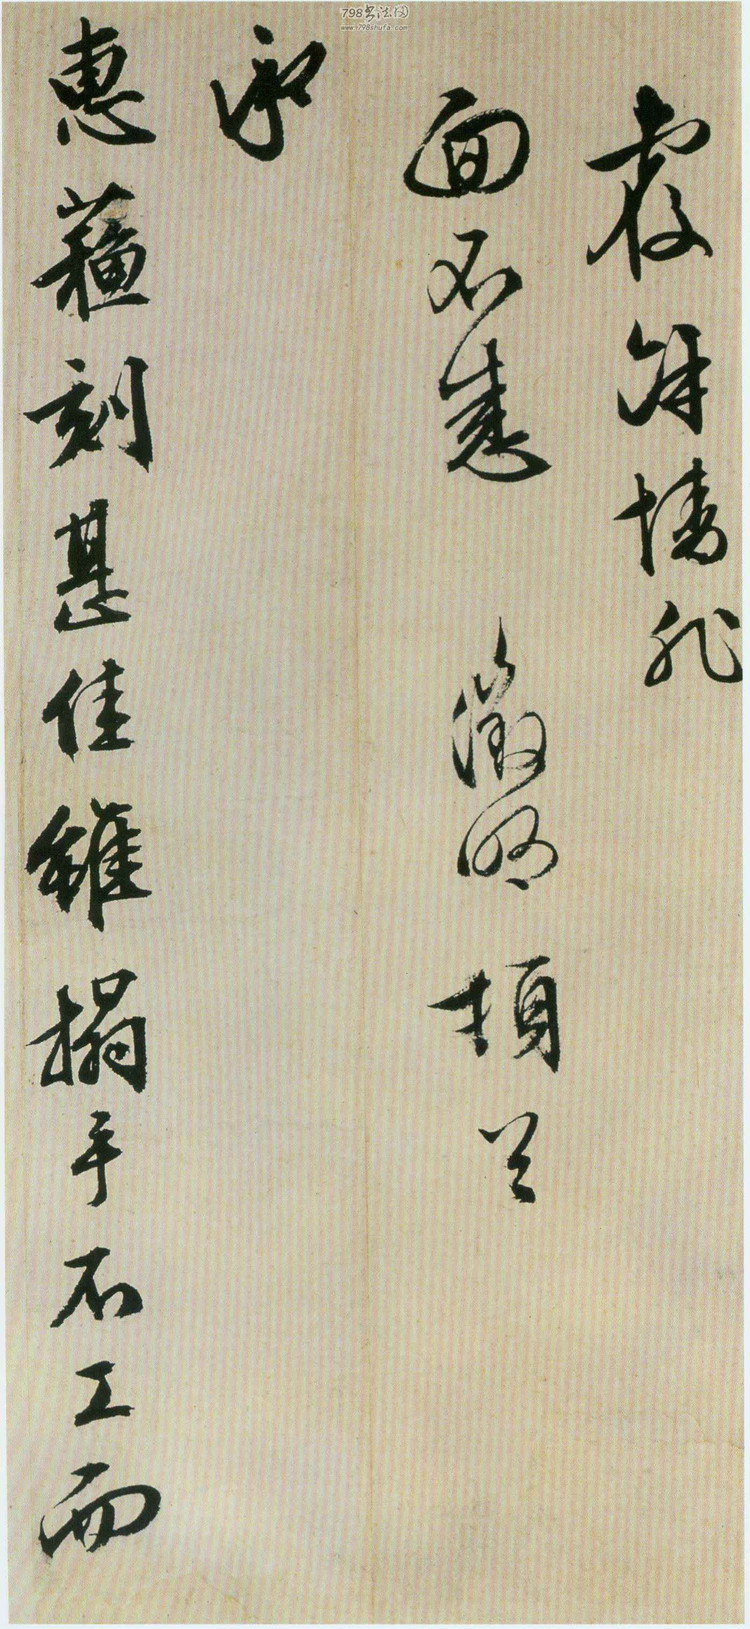 798书法网
www.798shufa.com
情非
面不悉 徵明頓首
承
惠蘓刻甚佳雖搨手不工而